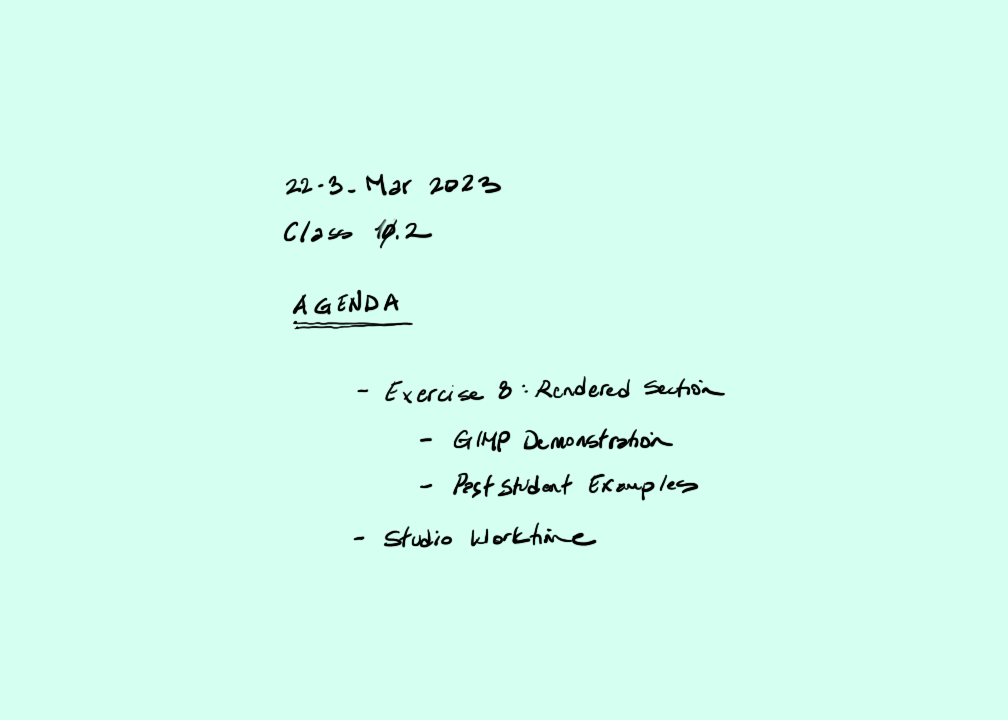 22-3-Mar 2023
Class 10.2
AGENDA
- Exercise 8: Rendered Section
- GIMP Demonstration
- Past Student Examples
- Studio Worktime